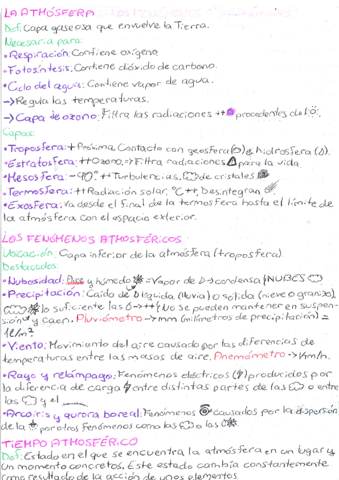 LA ATMÓSFERA
Def: Capa gaseosa que envuelve la Tierra.
Necesaria para:
• Respiración: Contiene oxígeno
• Fotosíntesis: Contiene dióxido de carbono.
• Ciclo del agua: Contiene vapor de agua.
→ Regula las temperaturas.
→ Capa de ozono: Filtra las radiaciones ++ procedentes del
Capas:
• Troposfera: + Próxima. Contacto con geosfera e hidrosfera
• Estratosfera: ++ Ozono → Filtra radiaciones para la vida.
• Mesosfera: -90° ++ Turbulencias, de cristales
• Termosfera: ++ Radiación solar. °C ++. Desintegran
• Exosfera: Va desde el final de la termosfera hasta el límite de
la atmósfera con el espacio exterior.
LOS FENÓMENOS ATMOSFÉRICOS
Ubicación: Capa inferior de la atmósfera (troposfera).
Destacados:
• Nubosidad: y húmedo = Vapor de condensa NUBES
• Precipitación: Caída de líquida (lluvia) o sólida (nieve o granizo)
lo suficiente las ++ No se pueden mantener en suspen-
sión y caen. Pluviómetro → mm (milímetros de precipitación) =
1L/m²
• Viento: Movimiento del aire causado por las diferencias de
temperaturas entre las masas de aire. Anemómetro → Km/h.
• Rayo y relámpago: Fenómenos eléctricos producidos por
la diferencia de carga entre distintas partes de las o entre
las y el
• Arcoíris y aurora boreal: Fenómenos causados por la dispersión
de la por otros fenómenos como las o las
TIEMPO ATMOSFÉRICO
Def: Estado en el que se encuentra la atmósfera en un lugar y
un momento concretos. Este estado cambia constantemente
como resultado de la acción de unos elementos.